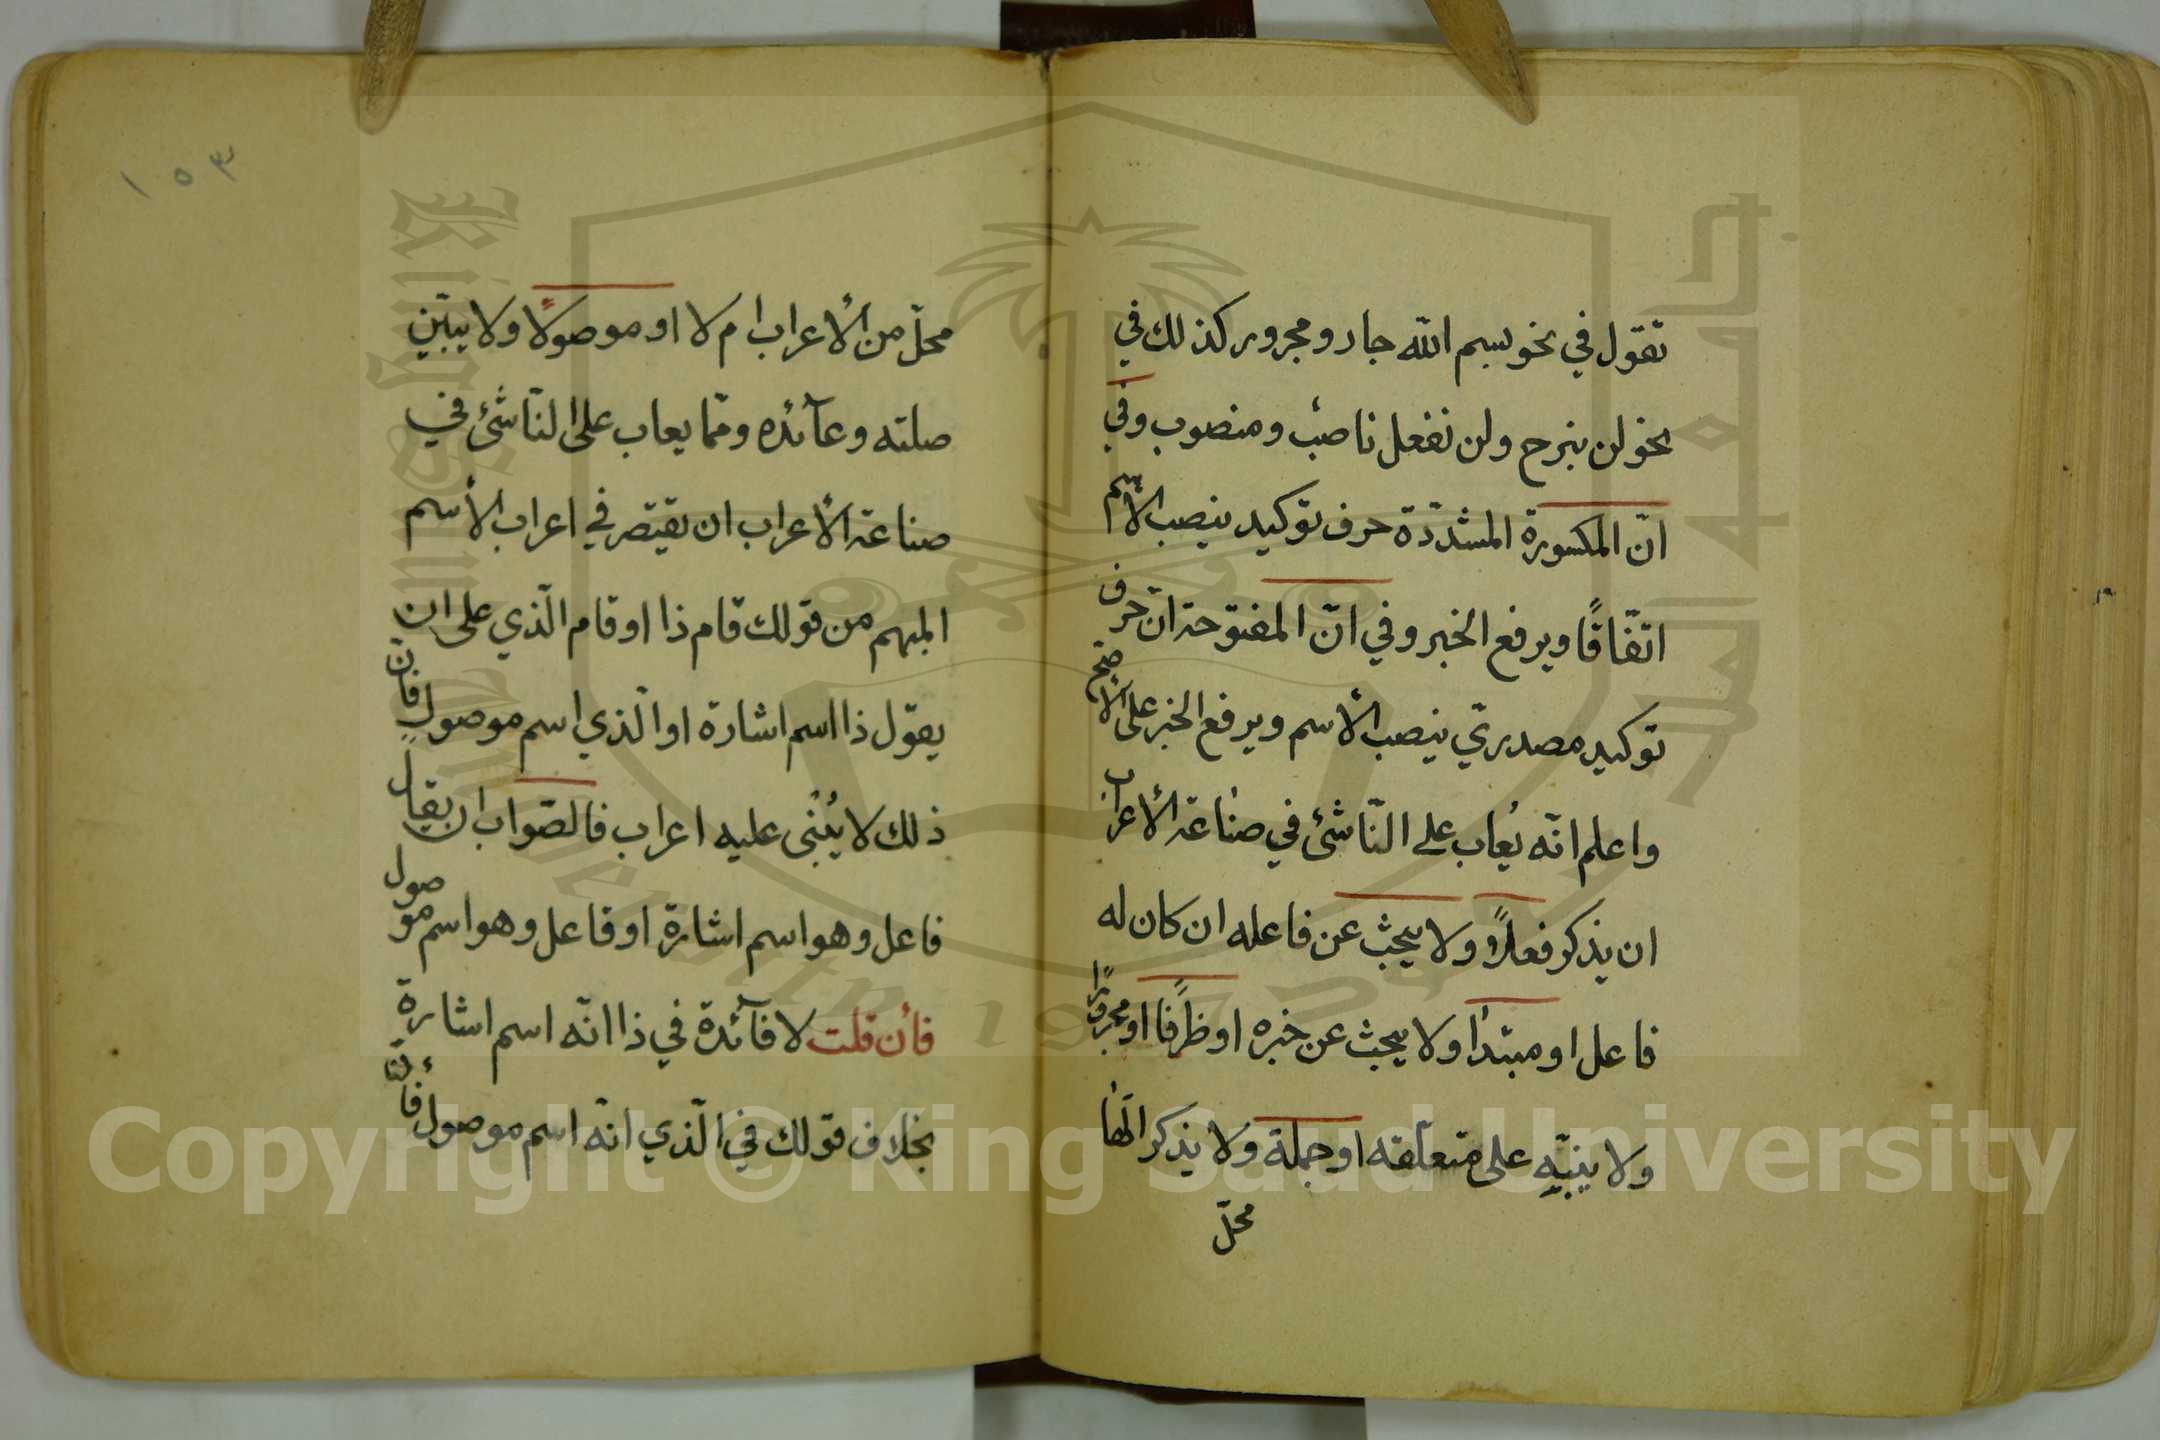 تقول في نحو بسم اللّه جار ومجرور كذلك في
نحو لن نبرح ولن نفعل ناصب ومنصوب وفي
انّ المكسورة المشدّدة حرف توكيد ينصب الأسم
اتّفاقًا ويرفع الخبر وفي انّ المفتوحة انّ حرف
توكيد مصدريّ ينصب الأسم ويرفع الخبر على الأصح
واعلم انّه يُعاب على النّاشئ في صناعة الأعراب
ان يذكر فعلاً ولا يبحث عن فاعله ان كان له
فاعل او مبتدأ ولا يبحث عن خبره او ظرفًا او مجرورًا
ولا ينبّه على متعلّقه او جملة ولا يذكر الها
محلّ
١٥٣
محلّ من الأعراب ام لا او موصولًا ولا يبيّن
صلته وعآئده وممّا يعاب على النّاشئ في
صناعة الأعراب ان يقتصر في اعراب الأسم
المبهم من قولك قام ذا او قام الّذي على ان
يقول ذا اسم اشارة او الّذي اسم موصول فانّ
ذلك لا يُبْنى عليه اعراب فالصّواب ان يقال
فاعل وهو اسم اشارة او فاعل وهو اسم موصول
فأن قلت لا فآئدة في ذا انّه اسم اشارة
بخلاف قولك في الّذي انّه اسم موصول فأنّ
Copyright © King Saud University
جامعة الملك سعود
King Saud University
1957